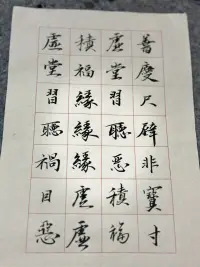 善慶尺璧非寶寸
虛堂習聽惡積福
積福緣緣緣虛虛
虛堂習聽禍因惡